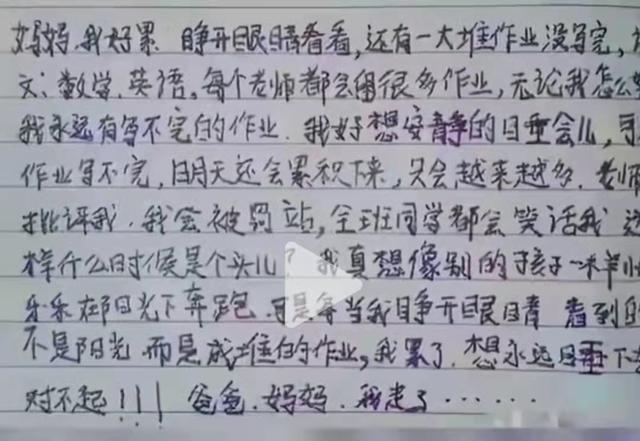 妈妈,我好累 睁开眼睛看看,还有一大堆作业没写完,
文,数学,英语。每个老师都会留很多作业,无论我怎么
我永远有写不完的作业.我好想安静的睡会儿,
作业写不完,明天还会累积下来,只会越来越多.老师
批评我.我会被罚站,全班同学都会笑话我 这
样什么时候是个头儿?我真想像别的孩子一样
乐乐在阳光下奔跑.可是每当我睁开眼睛 看到的
不是阳光 而是成堆的作业,我累了.想永远睡下去
对不起!!!爸爸.妈妈.我走了······